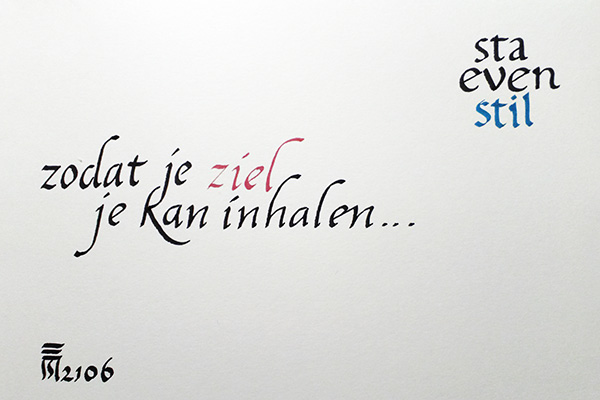 sta
even
stil
zodat je ziel
je kan inhalen...
2106